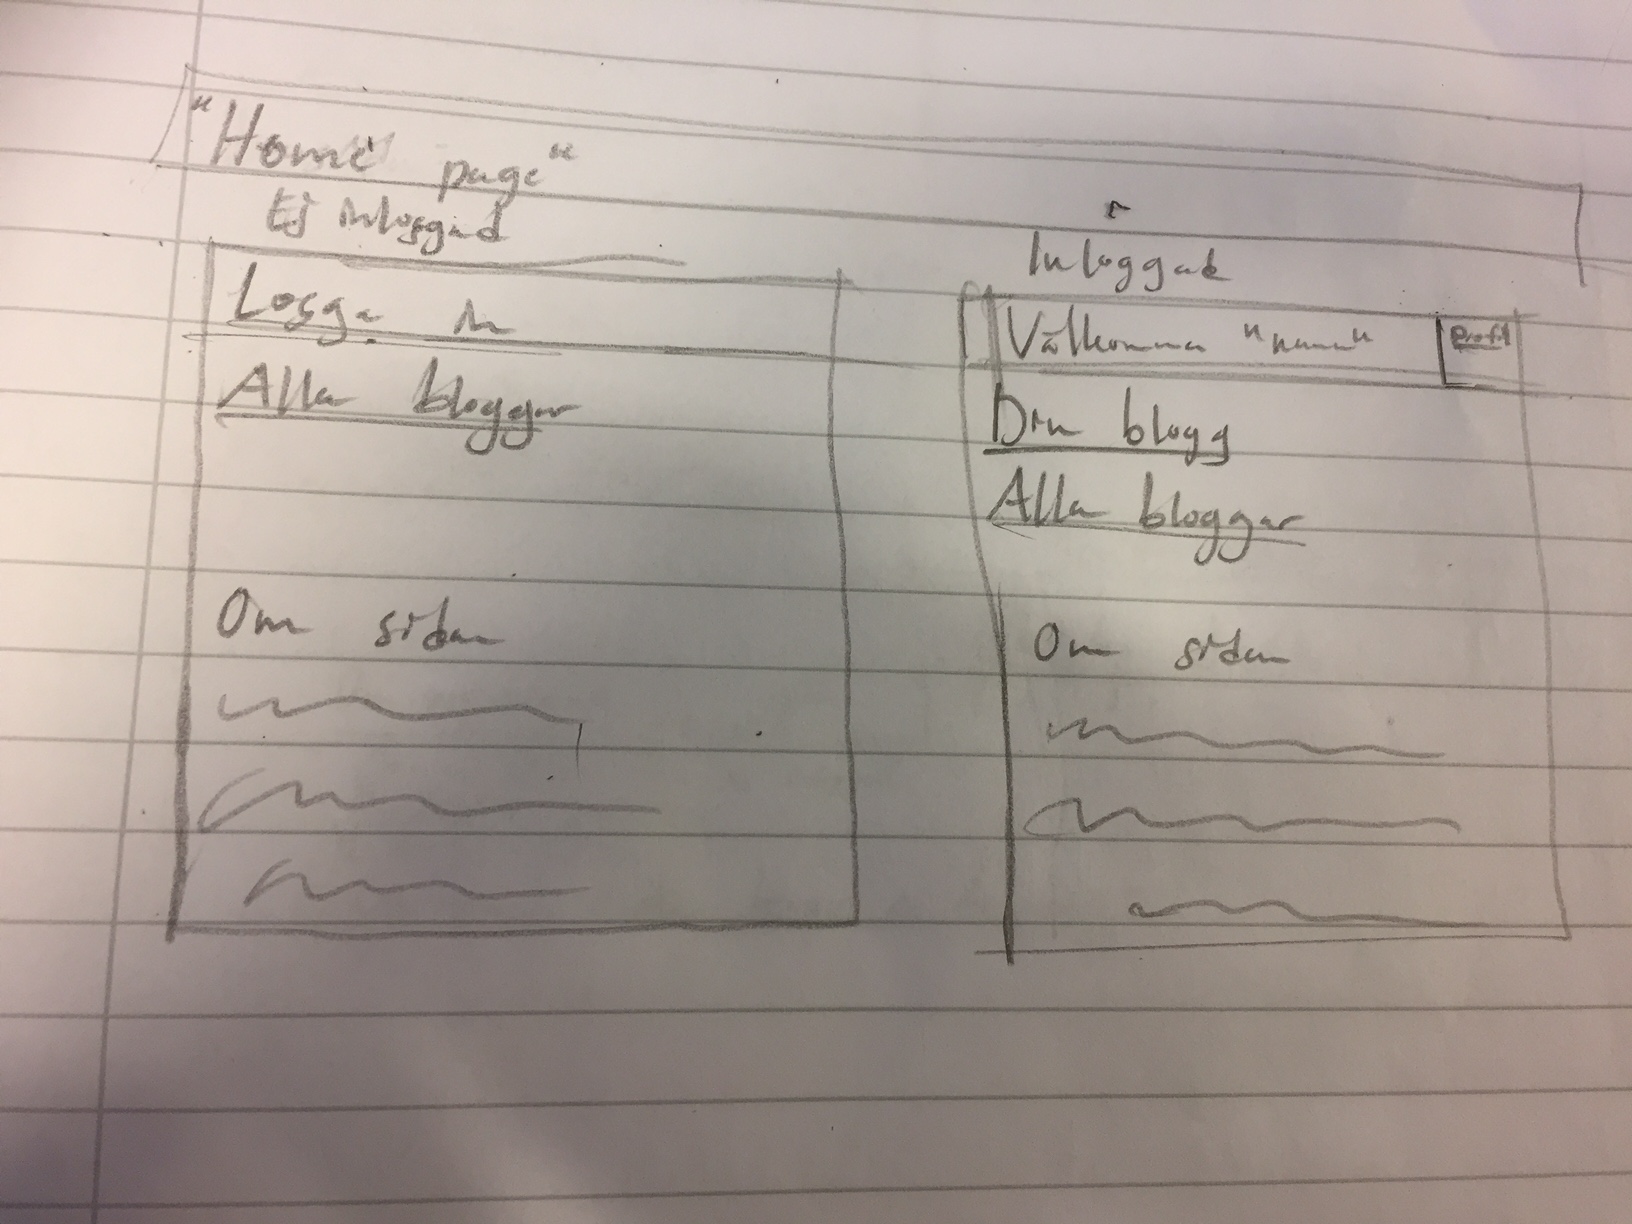 "Home page"
Ej inloggad
Logga in
Alla bloggar
Om sidan
Inloggad
Välkommen "namn"
Profil
Din blogg
Alla bloggar
Om sidan